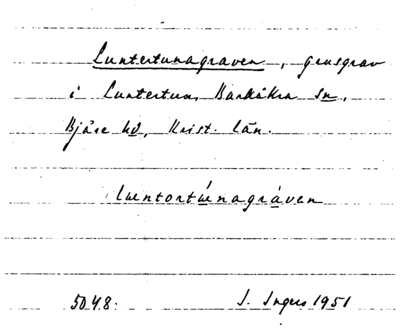 Luntertunagraven, grusgrav
i Luntertun, Barkåkra sn,
Bjäre hd, Krist. län.
luntortúnagráven
5048. I. Ingers 1951